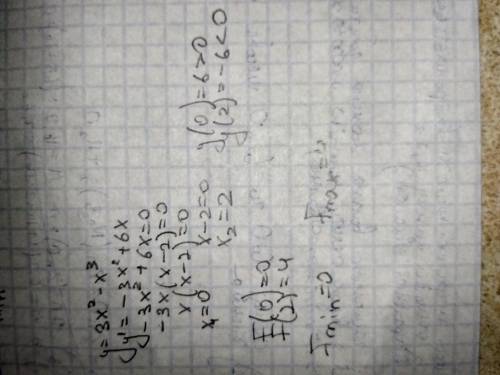 y = 3x² - x³
y' = -3x² + 6x
y - 3x² + 6x = 0
-3x(x-2) = 0
x(x-2) = 0
x₁ = 0 x-2 = 0
x₂ = 2
y(0) = 6 > 0
y(2) = -6 < 0
F(0) = 0
F(2) = 4
Fmin = 0 Fmax = 4